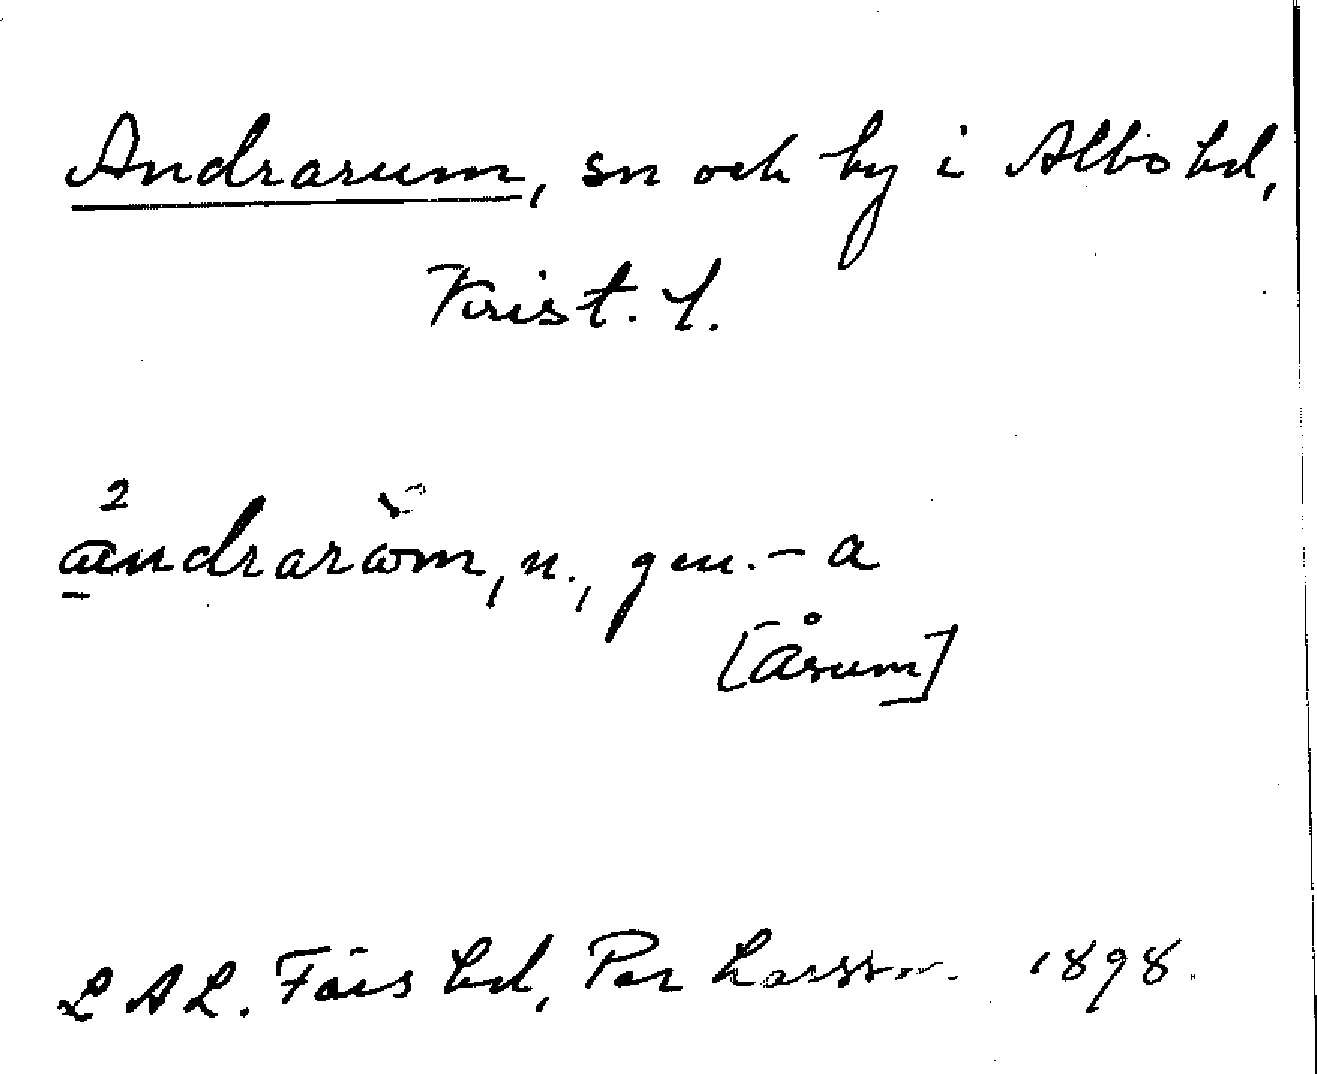 Andrarum, sn och by i Albo hd,
Krist. l.
2
ændraröm, n., gen. – a
[Åsum]
LAL. Färs hd, Per Larsson. 1898.